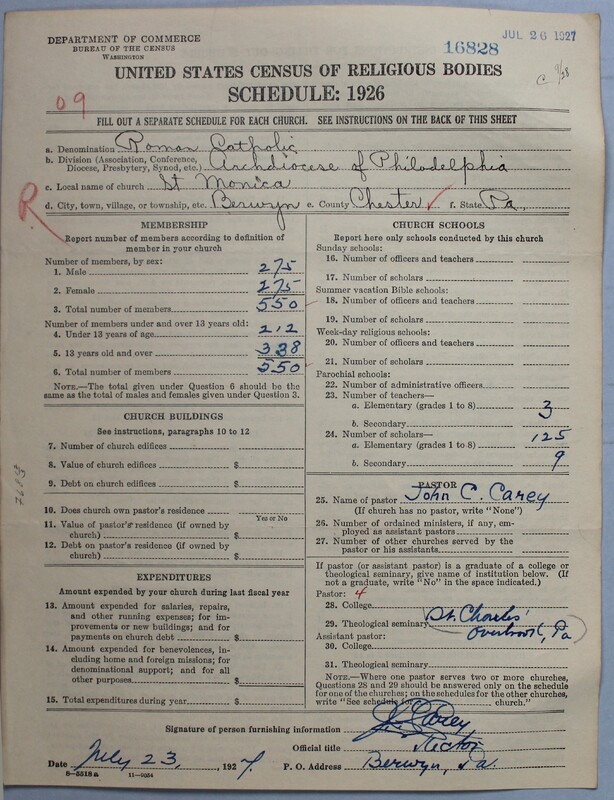 DEPARTMENT OF COMMERCE
BUREAU OF THE CENSUS
WASHINGTON
16828
JUL 26 1927
UNITED STATES CENSUS OF RELIGIOUS BODIES
SCHEDULE: 1926
C 9/28
09
FILL OUT A SEPARATE SCHEDULE FOR EACH CHURCH. SEE INSTRUCTIONS ON THE BACK OF THIS SHEET
a. Denomination Roman Catholic
b. Division (Association, Conference, Diocese, Presbytery, Synod, etc.) Archdiocese of Philadelphia
c. Local name of church St Monica
d. City, town, village, or township, etc. Berwyn e. County Chester f. State Pa.
R
MEMBERSHIP
Report number of members according to definition of
member in your church
Number of members, by sex:
1. Male 275
2. Female 275
3. Total number of members 550
Number of members under and over 13 years old:
4. Under 13 years of age 212
5. 13 years old and over 338
6. Total number of members 550
NOTE.—The total given under Question 6 should be
the same as the total of males and females given under Question 3.
CHURCH BUILDINGS
See instructions, paragraphs 10 to 12
7. Number of church edifices
8. Value of church edifices $
9. Debt on church edifices $
10. Does church own pastor's residence
Yes or No
11. Value of pastor's residence (if owned by
church) $
12. Debt on pastor's residence (if owned by
church) $
EXPENDITURES
Amount expended by your church during last fiscal year
13. Amount expended for salaries, repairs,
and other running expenses; for im-
provements or new buildings; and for
payments on church debt $
14. Amount expended for benevolences,
including home and foreign missions; for
denominational support; and for all
other purposes $
15. Total expenditures during year $
CHURCH SCHOOLS
Report here only schools conducted by this church
Sunday schools:
16. Number of officers and teachers
17. Number of scholars
Summer vacation Bible schools:
18. Number of officers and teachers
19. Number of scholars
Week-day religious schools:
20. Number of officers and teachers
21. Number of scholars
Parochial schools:
22. Number of administrative officers
23. Number of teachers—
a. Elementary (grades 1 to 8) 3
b. Secondary
24. Number of scholars—
a. Elementary (grades 1 to 8) 125
b. Secondary 9
PASTOR
25. Name of pastor John C. Carey
(If church has no pastor, write "None")
26. Number of ordained ministers, if any, em-
ployed as assistant pastors
27. Number of other churches served by the
pastor or his assistants
If pastor (or assistant pastor) is a graduate of a college or
theological seminary, give name of institution below. (If
not a graduate, write "No" in the space indicated.)
Pastor: 4
28. College
29. Theological seminary St. Charles'
Overbrook, Pa
Assistant pastor:
30. College
31. Theological seminary
NOTE.—Where one pastor serves two or more churches,
Questions 28 and 29 should be answered only on the schedule
for one of the churches; on the schedules for the other churches,
write "See schedule for church."
Signature of person furnishing information J C Carey
Official title Rector
Date July 23, 1927. P. O. Address Berwyn, Pa.
8-5518a 11-9034